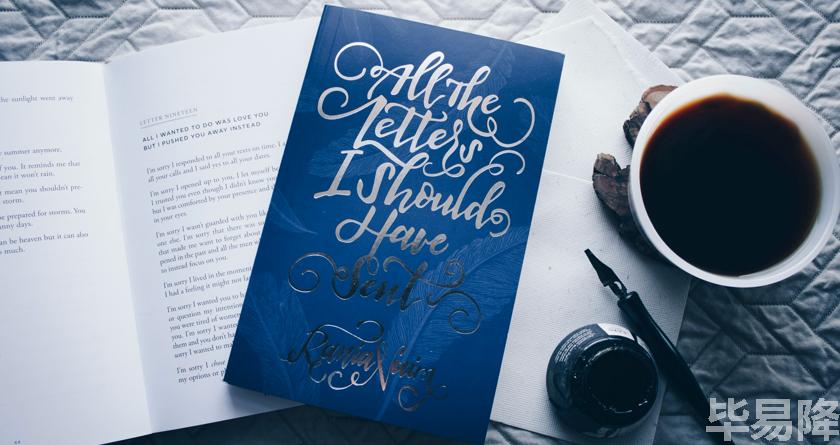 he sunlight went away
e summer anymore.
f you. It reminds me that
ean it won't rain.
t mean you shouldn't pre-
storm.
e prepared for storms. You
unny days.
an be heaven but it can also
s much.
64
LETTER NINETEEN
ALL I WANTED TO DO WAS LOVE YOU
BUT I PUSHED YOU AWAY INSTEAD
I'm sorry I responded to all your texts on time. I
all your calls and I said yes to all your dates.
I'm sorry I opened up to you, I let myself be
I trusted you even though I didn't know you
but I was comforted by your presence and th
in your eyes.
I'm sorry I wasn't guarded with you lik
one else. I'm sorry that there was so
that made me want to forget about
pened in the past and all the men w
to instead focus on you.
I'm sorry I lived in the momen
I had a feeling it might not las
I'm sorry I wanted you to h
or question my intention
you were tired of women
them and you don't hav
sorry I wanted to ma
I'm sorry I chos
my options or p
All the
Letters
I Should
Have
Sent
Rania Naim
毕易隆